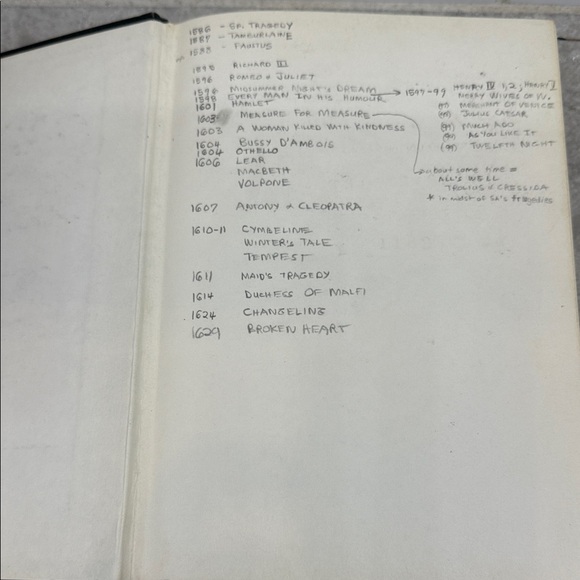 1586 - SP. TRAGEDY
1587 - TAMBURLAINE
1588 - FAUSTUS
1593 RICHARD III
1596 ROMEO & JULIET
1596 MIDSUMMER NIGHT'S DREAM
1598 EVERY MAN IN HIS HUMOUR → 1597-99 HENRY IV 1,2; HENRY V
1601 HAMLET MERRY WIVES OF W.
1603 MEASURE FOR MEASURE MERCHANT OF VENICE
JULIUS CAESAR
1603 A WOMAN KILLED WITH KINDNESS MUCH ADO
1604 BUSSY D'AMBOIS AS YOU LIKE IT
1604 OTHELLO TWELFTH NIGHT
1606 LEAR
MACBETH about same time =
VOLPONE ALL'S WELL
TROILUS & CRESSIDA
* in midst of Sh's tragedies
1607 ANTONY & CLEOPATRA
1610-11 CYMBELINE
WINTER'S TALE
TEMPEST
1611 MAID'S TRAGEDY
1614 DUCHESS OF MALFI
1624 CHANGELING
1629 BROKEN HEART